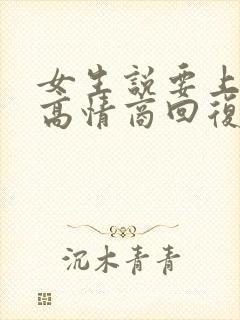 女生説要上
高情商回復
沉木青青